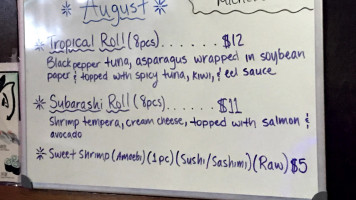 * August *
* Tropical Roll (8pcs)....... $12
Black pepper tuna, asparagus wrapped in soybean
paper & topped with spicy tuna, kiwi, & eel sauce
* Subarashi Roll (8pcs)....... $11
Shrimp tempera, cream cheese, topped with salmon &
avocado
* Sweet Shrimp (Amaebi) (1pc) (Sushi/Sashimi) (Raw) $5